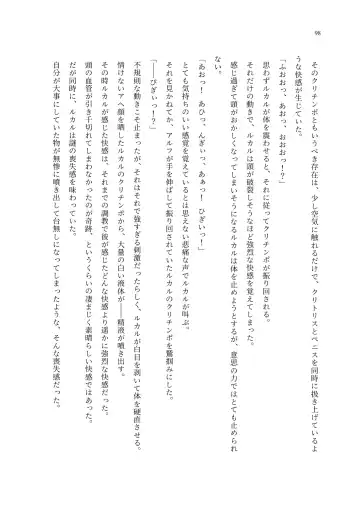 98
そのクリチンポともいうべき存在は、少し空気に触れるだけで、クリトリスとペニスを同時に扱き上げているよ
うな快感が生じていた。
「ふおぉっ、あおっ、おおおっ！？」
思わずルカルが体を震わせると、それに従ってクリチンポが振り回される。
それだけの動きで、ルカルは頭が破裂しそうなほど強烈な快感を覚えてしまった。
感じ過ぎて頭がおかしくなってしまいそうになるルカルは体を止めようとするが、意思の力ではとても止められ
ない。
「あおっ！　あひっ、んぎいっ、あぁっ！　ひぎいっ！」
とても気持ちのいい感覚を覚えているとは思えない悲痛な声でルカルが叫ぶ。
それを見かねてか、アルフが手を伸ばして振り回されていたルカルのクリチンポを鷲掴みにした。
「――ぴぎいっ！？」
不規則な動きこそ止まったが、それはそれで強すぎる刺激だったらしく、ルカルが白目を剥いて体を硬直させる。
情けないアヘ顔を晒したルカルのクリチンポから、大量の白い液体が――精液が噴き出す。
その時のルカルが感じた快感は、それまでの調教で彼が感じたどんな快感より遥かに強烈な快感だった。
頭の血管が引き千切れてしまわなかったのが奇跡、というくらいの凄まじく素晴らしい快感ではあった。
だが同時に、ルカルは謎の喪失感を味わっていた。
自分が大事にしていた物が無惨に噴き出して台無しになってしまったような、そんな喪失感だった。